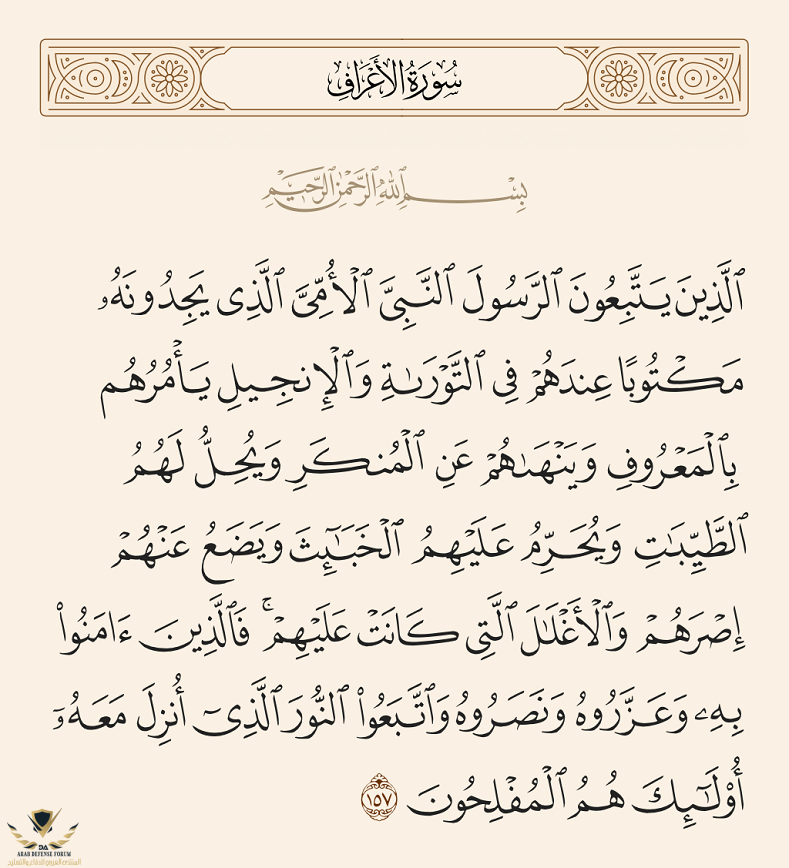 سُورَةُ الأَعْرَافِ
بِسْمِ ٱللَّهِ ٱلرَّحْمَٰنِ ٱلرَّحِيمِ
ٱلَّذِينَ يَتَّبِعُونَ ٱلرَّسُولَ ٱلنَّبِىَّ ٱلْأُمِّىَّ ٱلَّذِى يَجِدُونَهُۥ
مَكْتُوبًا عِندَهُمْ فِى ٱلتَّوْرَىٰةِ وَٱلْإِنجِيلِ يَأْمُرُهُم
بِٱلْمَعْرُوفِ وَيَنْهَىٰهُمْ عَنِ ٱلْمُنكَرِ وَيُحِلُّ لَهُمُ
ٱلطَّيِّبَٰتِ وَيُحَرِّمُ عَلَيْهِمُ ٱلْخَبَٰٓئِثَ وَيَضَعُ عَنْهُمْ
إِصْرَهُمْ وَٱلْأَغْلَٰلَ ٱلَّتِى كَانَتْ عَلَيْهِمْ ۚ فَٱلَّذِينَ ءَامَنُوا۟
بِهِۦ وَعَزَّرُوهُ وَنَصَرُوهُ وَٱتَّبَعُوا۟ ٱلنُّورَ ٱلَّذِىٓ أُنزِلَ مَعَهُۥٓ
أُو۟لَٰٓئِكَ هُمُ ٱلْمُفْلِحُونَ ١٥٧
DA
ARAB DEFENSE FORUM
المنتدى العربي للدفاع والتسليح